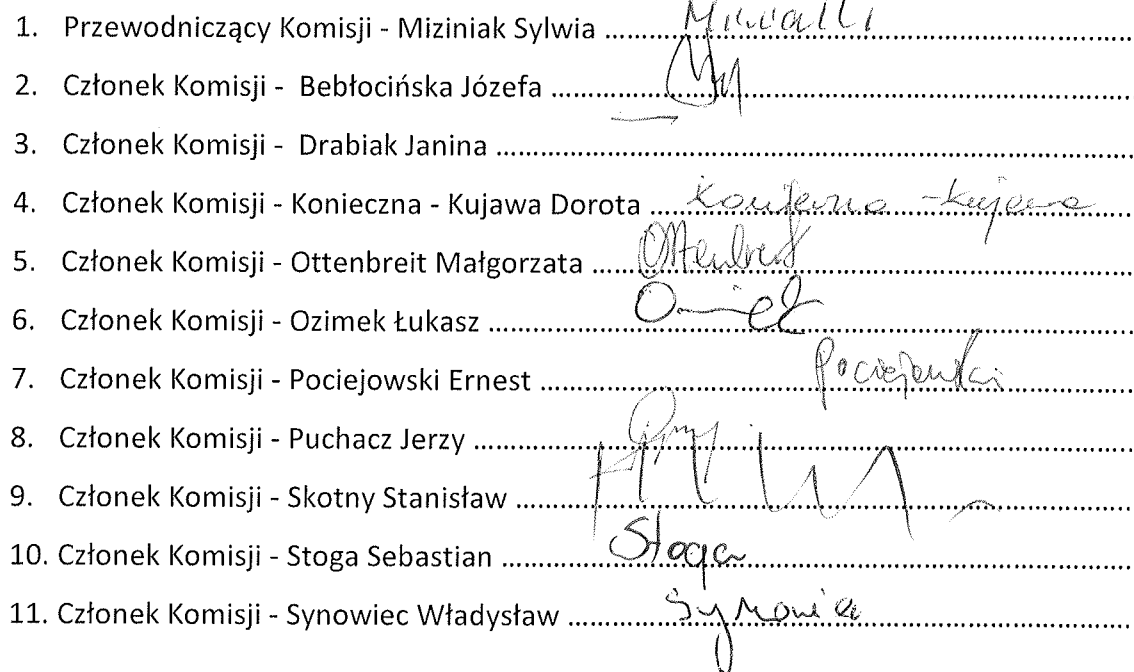 1. Przewodniczący Komisji - Miziniak Sylwia ........
2. Członek Komisji - Bebłocińska Józefa ........
3. Członek Komisji - Drabiak Janina ........
4. Członek Komisji - Konieczna - Kujawa Dorota ........ Konieczna - Kujawa
5. Członek Komisji - Ottenbreit Małgorzata ........ Ottenbreit
6. Członek Komisji - Ozimek Łukasz ........
7. Członek Komisji - Pociejowski Ernest ........ Pociejowski
8. Członek Komisji - Puchacz Jerzy ........
9. Członek Komisji - Skotny Stanisław ........
10. Członek Komisji - Stoga Sebastian ........ Stoga
11. Członek Komisji - Synowiec Władysław ........